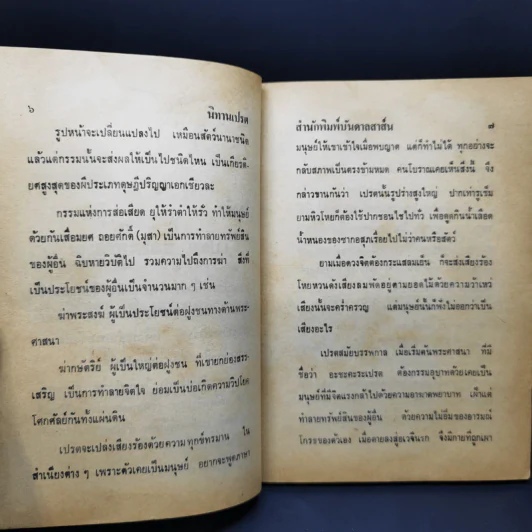 ๖
นิทานเปรต
รูปหน้าจะเปลี่ยนแปลงไป เหมือนสัตว์นานาชนิด
แล้วแต่กรรมนั้นจะส่งผลให้เป็นไปชนิดไหน เป็นเกียรติ-
ยศสูงสุดของผีประเภทดุษฎีปริญญาเอกเชียวละ
กรรมแห่งการส่อเสียด ยุให้รำตำให้รั่ว ทำให้มนุษย์
ด้วยกันเสื่อมยศ ถอยศักดิ์ (มุสา) เป็นการทำลายทรัพย์สิน
ของผู้อื่น ฉิบหายวิบัติไป รวมความไปถึงการฆ่า สิ่งที่
เป็นประโยชน์ของผู้อื่นเป็นจำนวนมาก ๆ เช่น
ฆ่าพระสงฆ์ ผู้เป็นประโยชน์ต่อฝูงชนทางด้านพระ-
ศาสนา
ฆ่ากษัตริย์ ผู้เป็นใหญ่ต่อฝูงชน ที่เขายกย่องสรร-
เสริญ เป็นการทำลายจิตใจ ย่อมเป็นบ่อเกิดความวิปโยค
โศกศัลย์กันทั้งแผ่นดิน
เปรตจะเปล่งเสียงร้องด้วยความทุกข์ทรมาน ใน
สำเนียงต่าง ๆ เพราะตัวเคยเป็นมนุษย์ อยากจะพูดภาษา
สำนักพิมพ์บันดาลสาส์น
๗
มนุษย์ให้เขาเข้าใจเมื่อพบญาติ แต่ก็ทำไม่ได้ ทุกอย่างจะ
กลับสภาพเป็นตรงข้ามหมด คนโบราณเคยเห็นสิ่งนี้ จึง
กล่าวขานกันว่า เปรตนั้นรูปร่างสูงใหญ่ ปากเท่ารูเข็ม
ยามหิวโหยก็ต้องใช้ปากชอนไชไปทั่ว เพื่อดูดกินน้ำเลือด
น้ำหนองของซากอสุภเรื่อยไปไม่ว่าคนหรือสัตว์
ยามเมื่อดวงจิตต้องกระแสลมเย็น ก็จะส่งเสียงร้อง
โหยหวนดังเสียงลมพัดอยู่ตามยอดไม้ด้วยความว้าเหว่
เสียงนั้นจะคร่ำครวญ แต่มนุษย์นั้นก็ฟังไม่ออกว่าเป็น
เสียงอะไร
เปรตสมัยบรรพกาล เมื่อเริ่มต้นพระศาสนา ที่มี
ชื่อว่า ต้องกรรมอุบาทว์ด้วยเคยเป็น
มนุษย์ที่มีจิตแรงกล้าไปด้วยความอาฆาตพยาบาท เผ้าแต่
ทำลายทรัพย์สินของผู้อื่น ด้วยความไม่อิ่มของอารมณ์
โกรธของตัวเอง เมื่อตายลงสู่อเวจีนรก จึงมีกายที่ถูกเผา